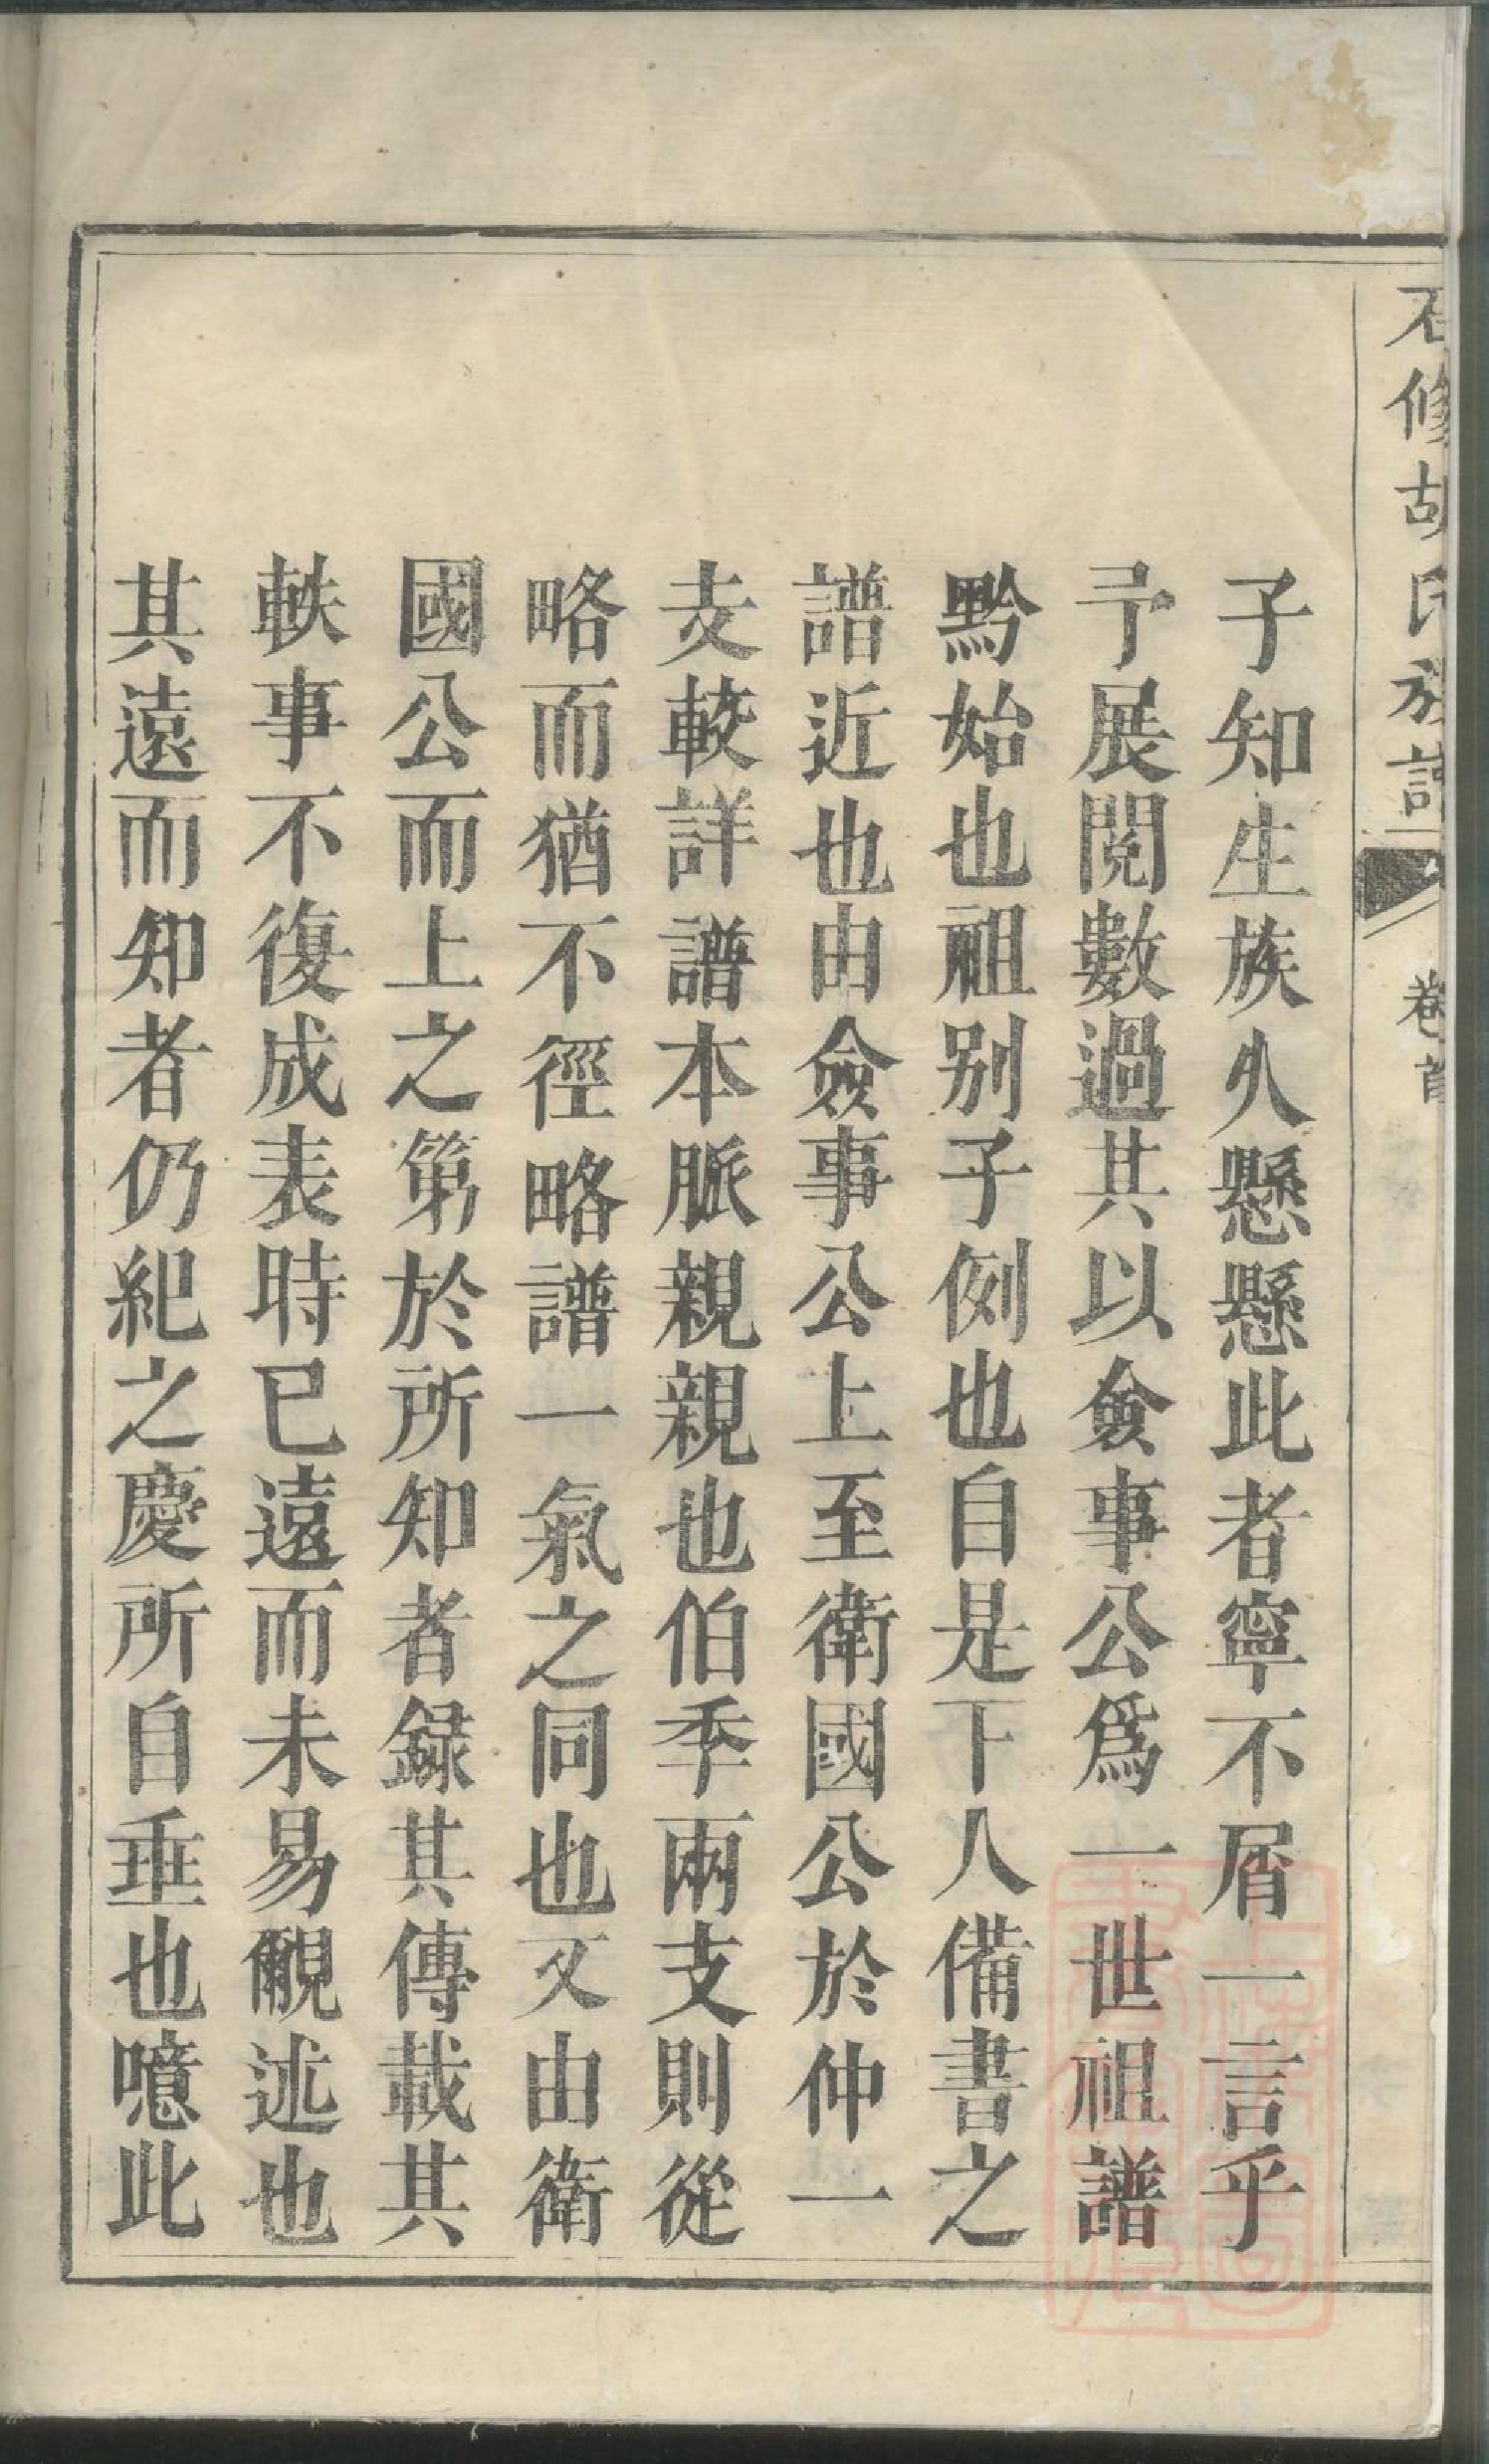 石修胡氏族譜 卷首
子知生族久懸懸此者寧不屑一言乎
予展閱數過其以僉事公爲一世祖譜
黔始也祖别子例也自是下人備書之
譜近也由僉事公上至衛國公於仲一
支較詳譜本脈親親也伯季兩支則從
略而猶不徑略譜一氣之同也又由衛
國公而上之第於所知者録其傳載其
軼事不復成表時已遠而未易覼述也
其遠而知者仍紀之慶所自垂也噫此